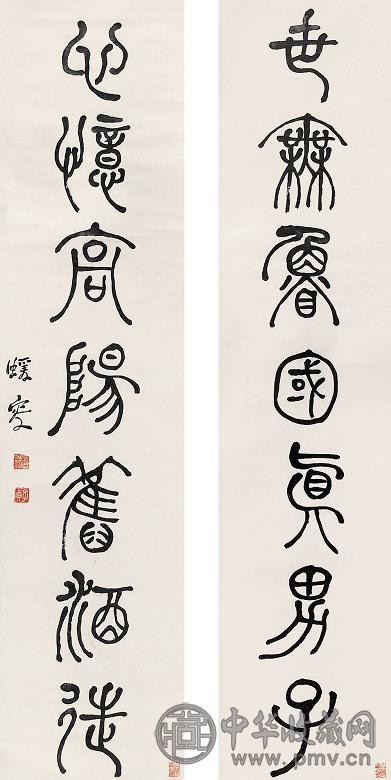 世無魯國真男子
心憶高陽舊酒徒
蝯叟
中华收藏网
www.pmv.cn